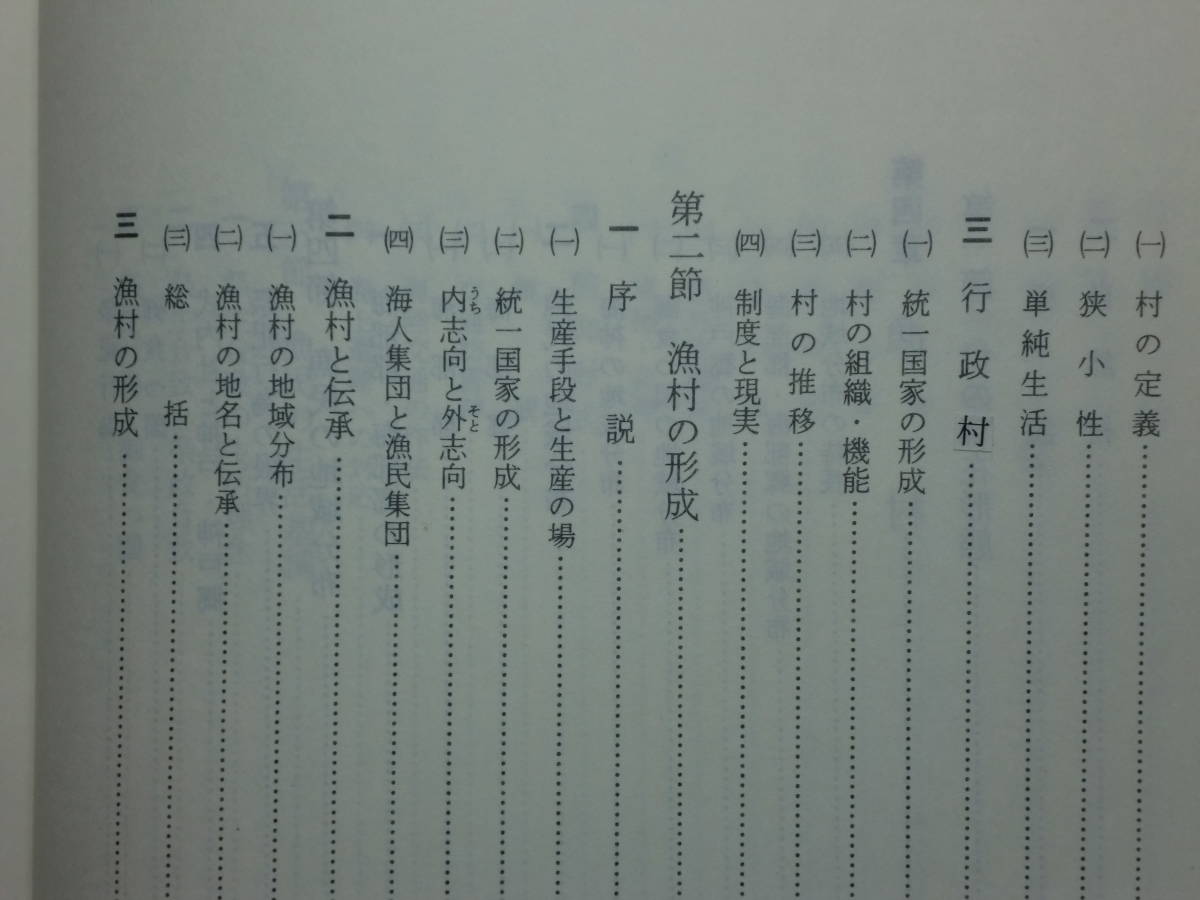 ㈠ 村の定義
㈡ 狭小性
㈢ 単純生活
三 行政村
㈠ 統一国家の形成
㈡ 村の組織・機能
㈢ 村の推移
㈣ 制度と現実
第二節 漁村の形成
一 序説
㈠ 生産手段と生産の場
㈡ 統一国家の形成
㈢ 内志向と外志向
うち
そと
㈣ 海人集団と漁民集団
二 漁村と伝承
㈠ 漁村の地域分布
㈡ 漁村の地名と伝承
㈢ 総括
三 漁村の形成